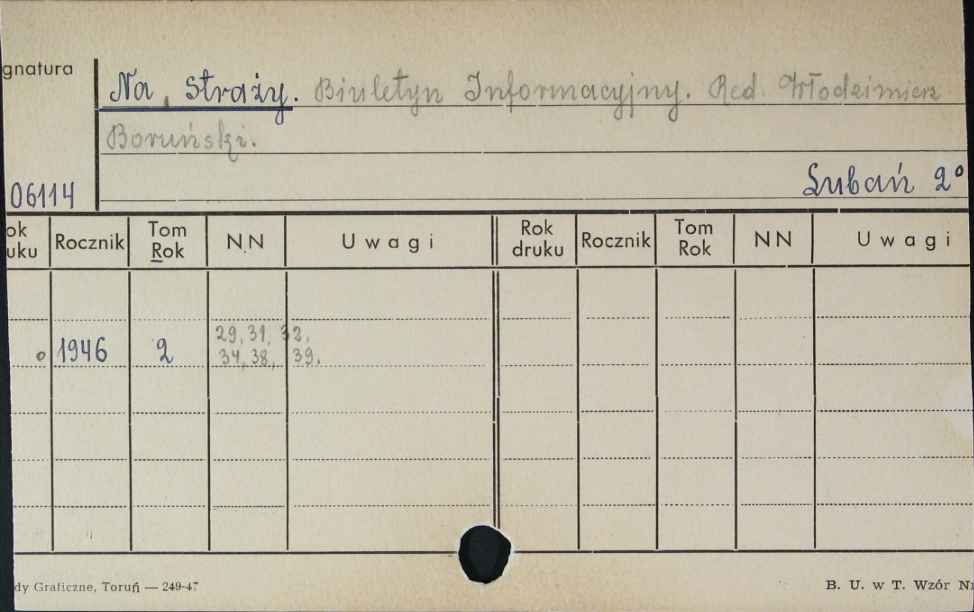 gnatura
Na Straży. Biuletyn Informacyjny. Red. Włodzimierz
Boruński.
06114 Lubań 2°
ok uku Rocznik Tom Rok NN Uwagi Rok druku Rocznik Tom Rok NN Uwagi
° 1946 2 29, 31, 32,
34, 38, 39.
dy Graficzne, Toruń — 249-47 B. U. w T. Wzór Nr